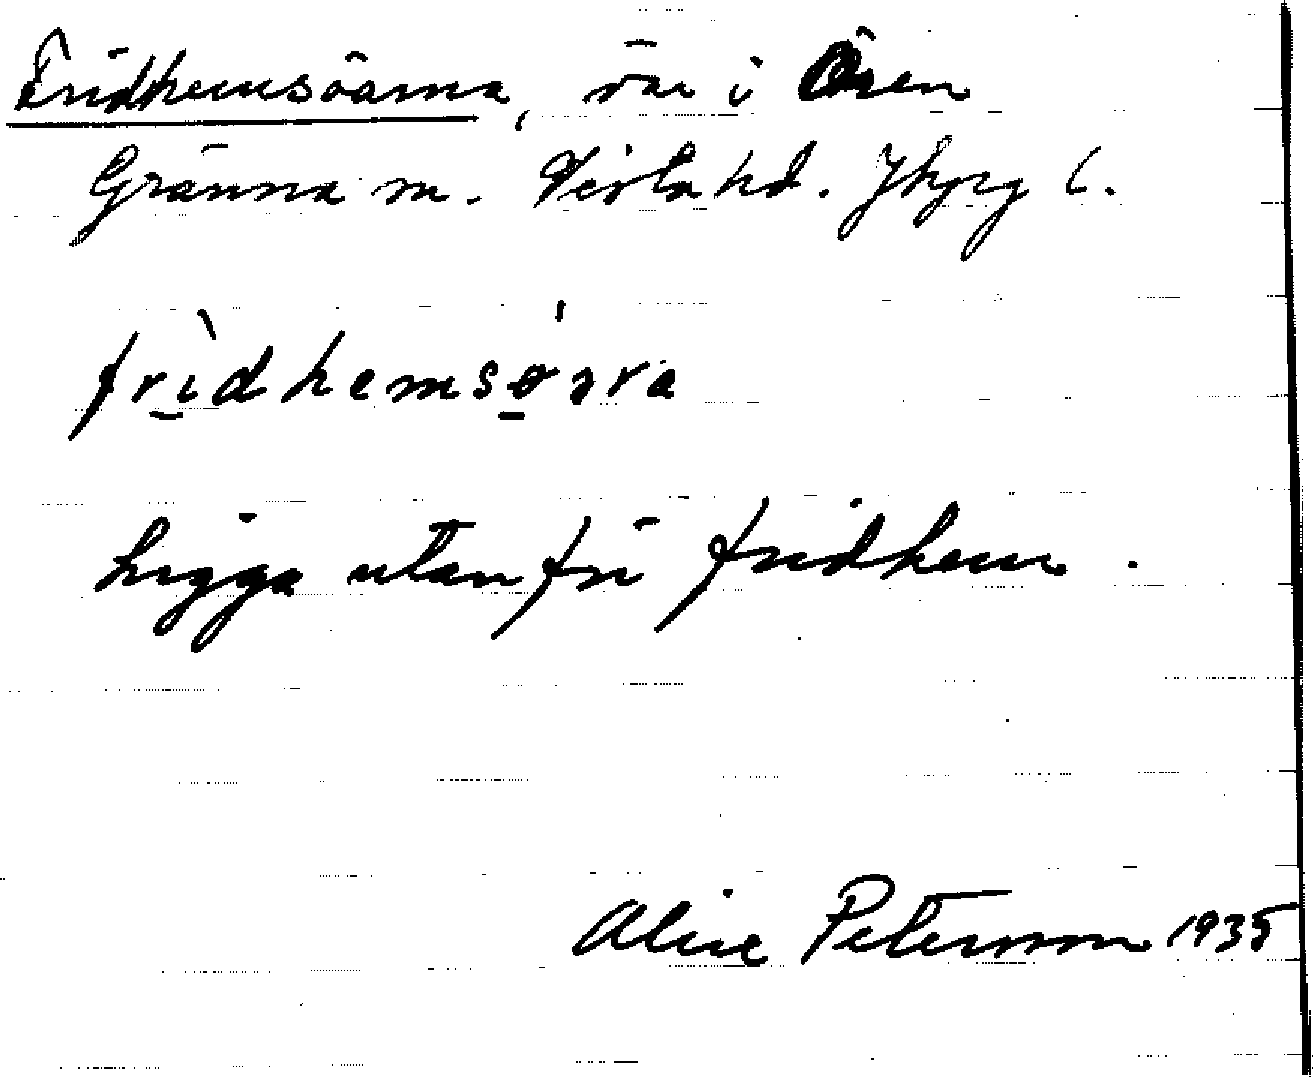 Fridhemsöarna, öar i Ören
Gränna sn. Vista hd. Jkpg l.
fridhemsøara
Ligga utanför Fridhem.
Alice Peterson 1935